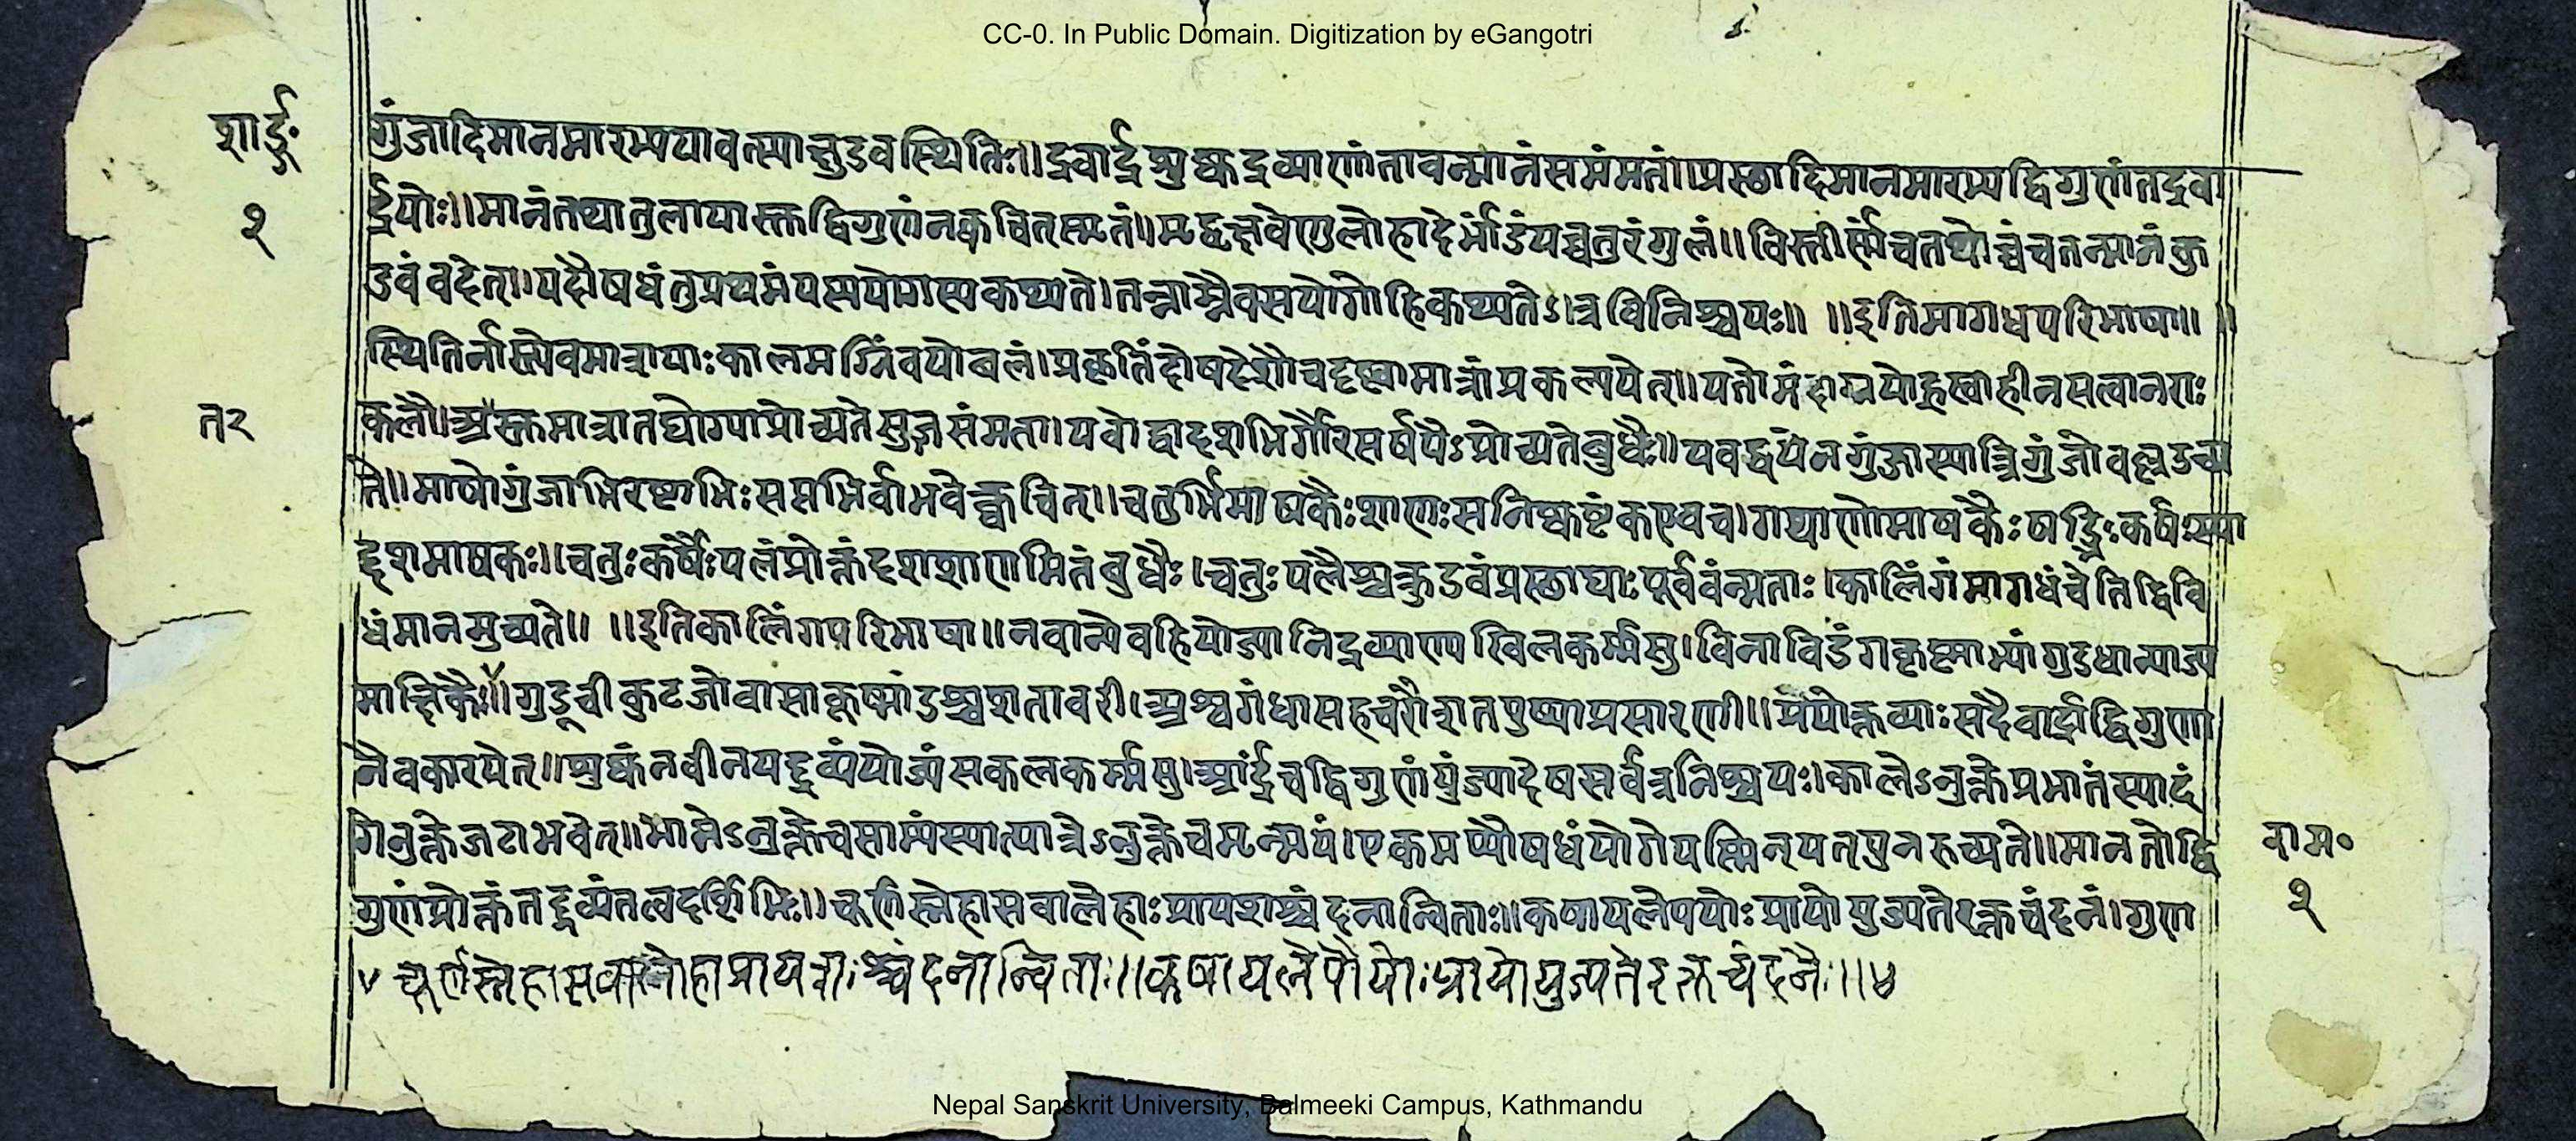 CC-0. In Public Domain. Digitization by eGangotri
शार्ङ्ग॰
गुंजादिमानमारभ्ययावत्स्यात्कुडवस्थितिः॥द्रवार्द्रशुष्कद्रव्याणांतावन्मानंसमंमतं॥प्रस्छादिमानमारभ्यद्विगुणंतद्रवा
र्द्रयोः॥मानंतथातुलायास्तद्विगुणंनक्वचित्स्मृतं॥मृद्वृक्षवेणुलोहादेर्भांडंयच्चतुरंगुलं॥विस्तीर्णंचतथोच्चंचतन्मानंकु
२
डवंवदेत्॥यदौषधंतुप्रथमंयस्ययोगस्यकथ्यते।तन्नाम्नैवसयोगोहिकथ्यतेऽत्रविनिश्चयः॥ ॥इतिमागधपरिभाषा॥ ॥
स्थितिर्नास्त्येवमात्रायाःकालमग्निंवयोबलं।प्रकृतिंदोषदेशौचदृष्ट्वामात्रांप्रकल्पयेत्॥यतोमंदाग्नयोह्रस्वाहीनसत्वानराः
त२
कलौ॥अतस्तमात्रातद्योग्याप्रोच्यतेसुज्ञसंमता।यवोद्वादशभिर्गौरसर्षपैःप्रोच्यतेबुधैः॥यवद्वयेनगुंजास्यात्त्रिगुंजोवल्लउच्य
ते॥माषोगुंजाभिरष्टाभिःसप्तभिर्वाभवेत्क्वचित्॥चतुर्भिर्माषकैःशाणःसनिष्कष्टंकएवच।गद्याणोमाषकैःषड्भिःकर्षःस्या
द्दशमाषकः॥चतुःकर्षैःपलंप्रोक्तंदशशाणमितंबुधैः।चतुःपलैश्चकुडवंप्रस्छाद्याःपूर्ववंन्मताः।कालिंगंमागधंचेतिद्विवि
धंमानमुच्यते॥ ॥इतिकालिंगपरिभाषा॥नवान्येवहियोज्यानिद्रव्याण्यखिलकर्म्मसु।विनाविडंगकृष्णाभ्यांगुडधान्याज्य
माक्षिकैः॥गुडूचीकुटजोवासाकूष्मांडश्चशतावरी।अश्वगंधासहचरौशतपुष्पाप्रसारणी॥प्रयोक्तव्याःसदैवार्द्राद्विगुणा
नैवकारयेत्॥शुष्कंनवीनयद्द्रव्यंयोज्यंसकलकर्म्मसु।आर्द्रंचद्विगुणंयुंज्यादेषसर्वत्रनिश्चयः।कालेऽनुक्तेप्रभातंस्यादं
गेनुक्तेजटाभवेत्॥भागेऽनुक्तेचसाम्यंस्यात्पात्रेऽनुक्तेचमृन्मयं।एकमप्यौषधंयोगेयस्मिन्यत्पुनरुच्यते॥मानतोद्वि
राम॰
गुणंप्रोक्तंतद्द्रव्यंतत्वदर्शिभिः॥चूर्णस्नेहासवालेहाःप्रायशश्चंदनान्विताः॥कषायलेपयोःप्रायोयुज्यतेरक्तचंदनं।गुण
२
४ चूर्णस्नेहासवालेहाप्रायशःश्चंदनान्विताः॥कषायलेपोयोःप्रायोयुज्यतेरक्तचंदनैः॥४
Nepal Sanskrit University, Balmeeki Campus, Kathmandu